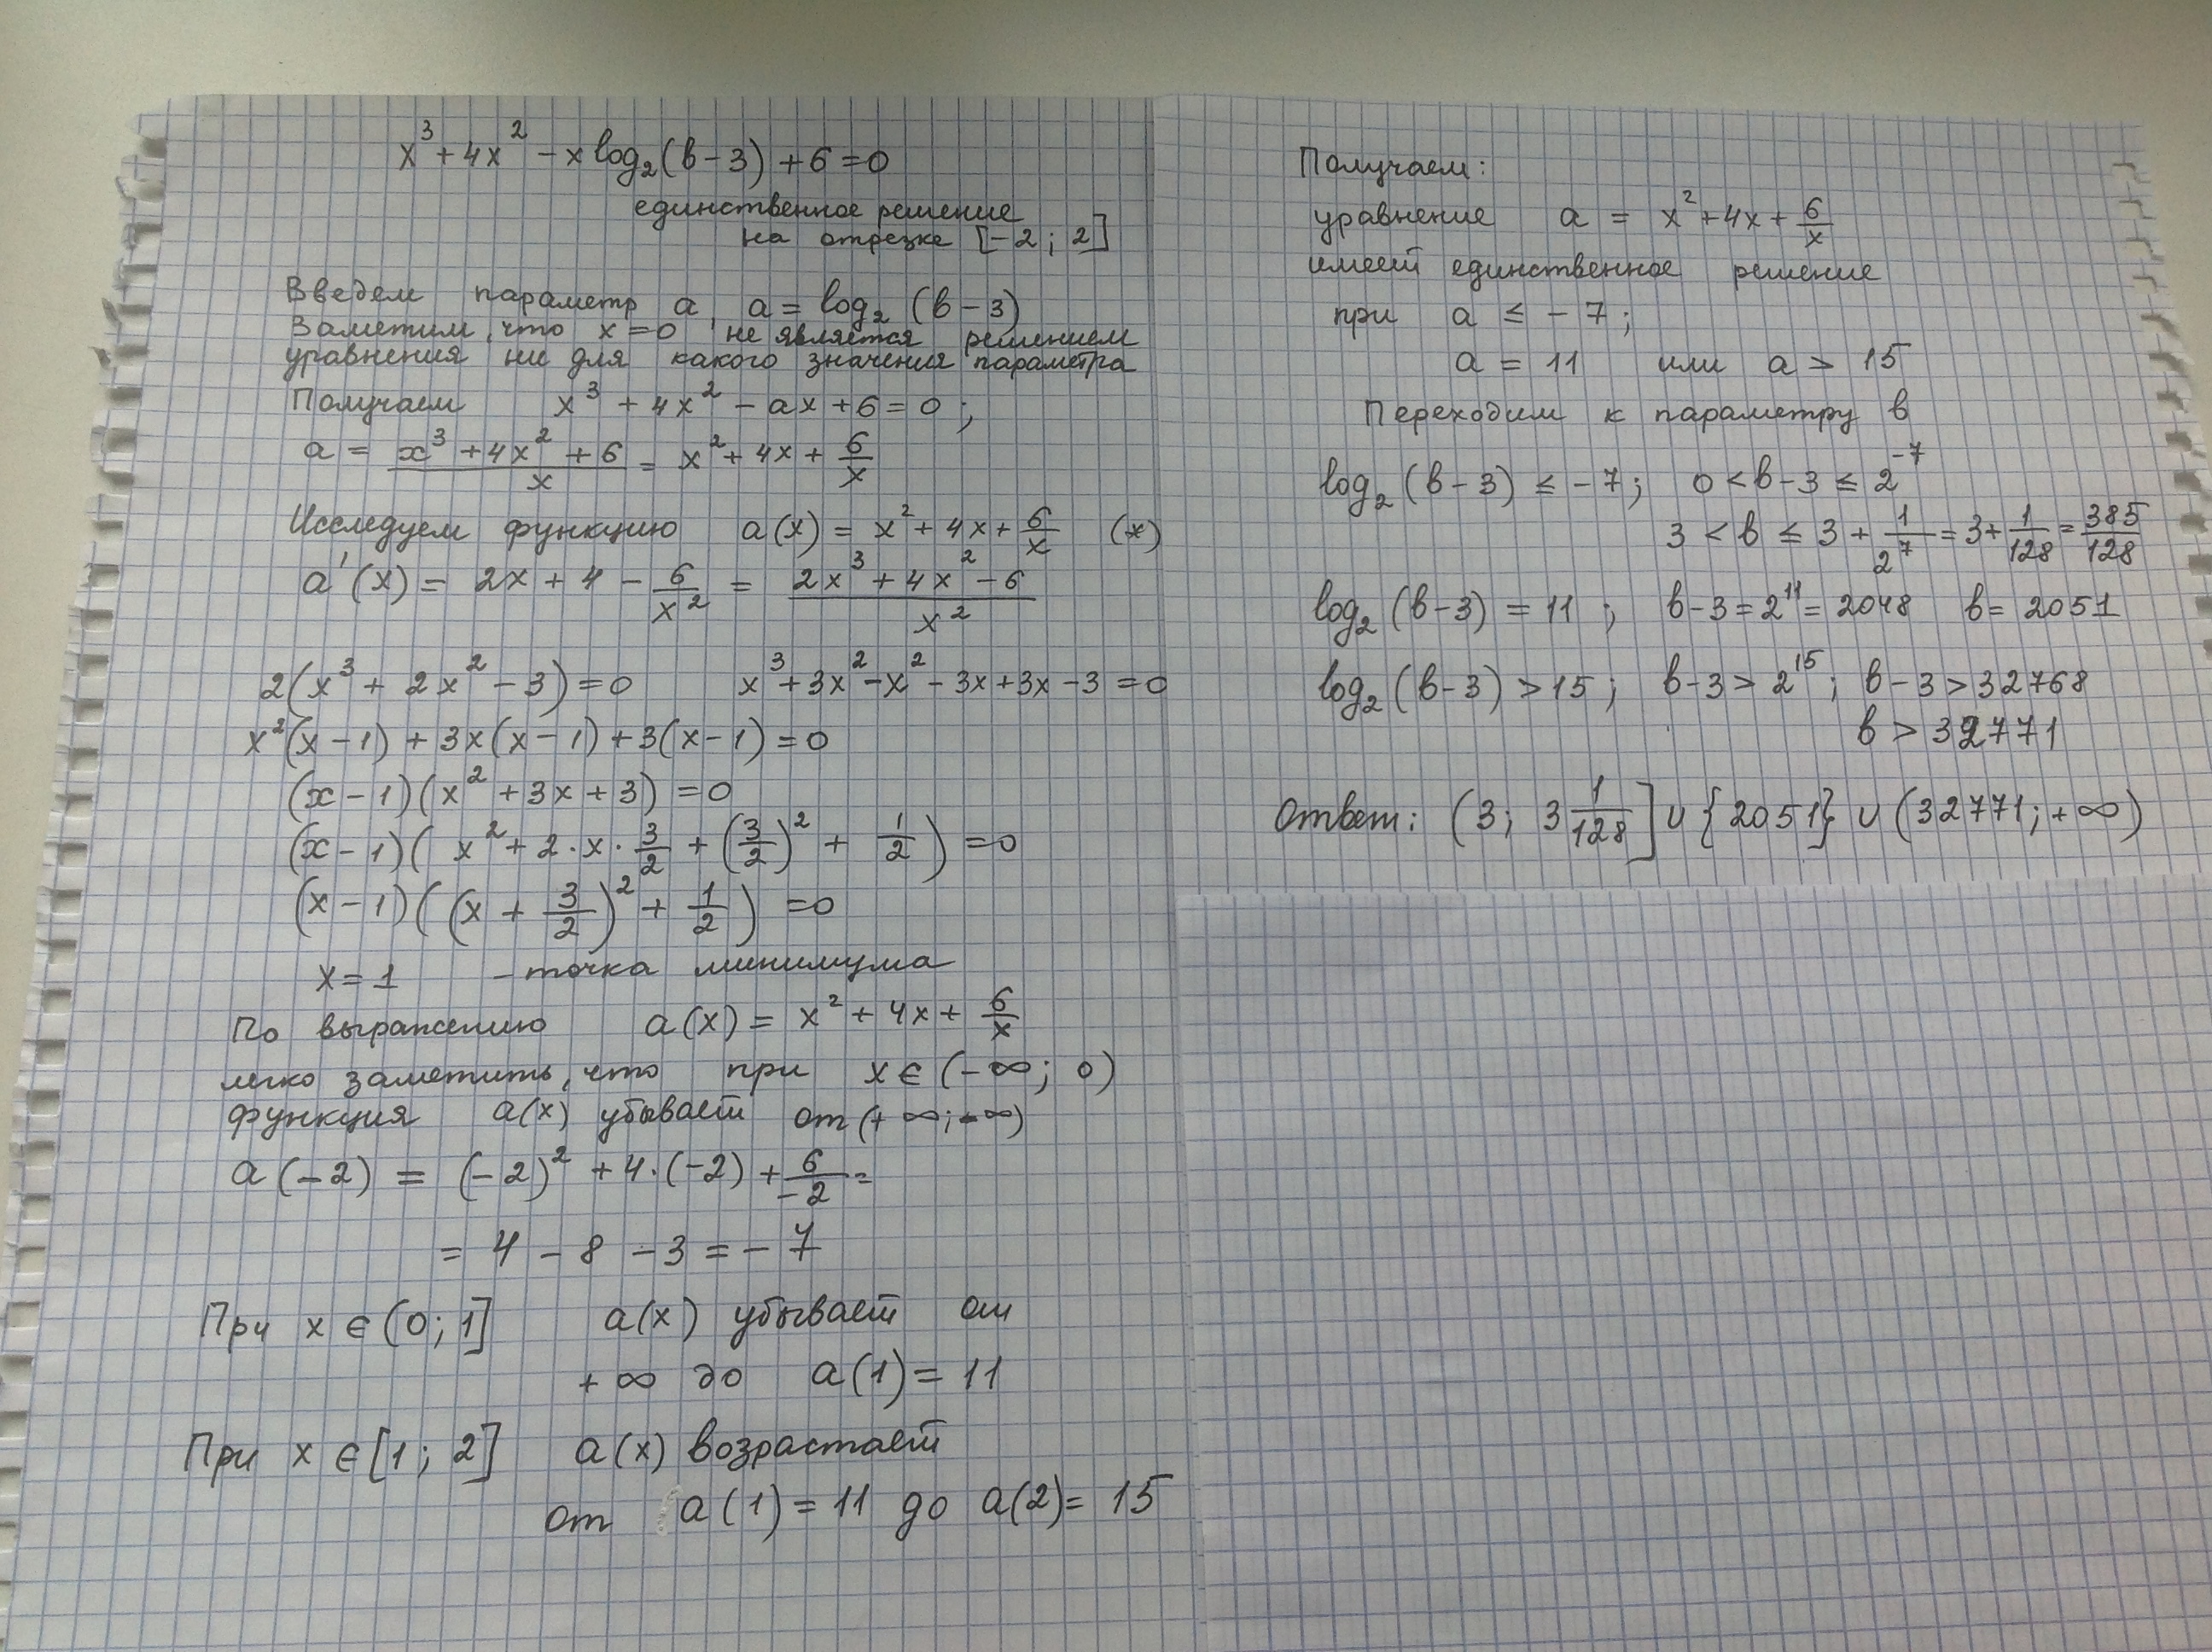 x³ + 4x² − x log₂(в−3) + 6 = 0
единственное решение
на отрезке [−2; 2]
Введем параметр a, a = log₂(в−3)
Заметим, что x = 0 не является решением
уравнения ни для какого значения параметра
Получаем x³ + 4x² − ax + 6 = 0;
a = (x³ + 4x² + 6)/x = x² + 4x + 6/x
Исследуем функцию a(x) = x² + 4x + 6/x (*)
a'(x) = 2x + 4 − 6/x² = (2x³ + 4x² − 6)/x²
2(x³ + 2x² − 3) = 0 x³ + 3x² − x² − 3x + 3x − 3 = 0
x²(x−1) + 3x(x−1) + 3(x−1) = 0
(x−1)(x² + 3x + 3) = 0
(x−1)(x² + 2·x·3/2 + (3/2)² + 1/2) = 0
(x−1)((x + 3/2)² + 1/2) = 0
x = 1 − точка минимума
По выражению a(x) = x² + 4x + 6/x
легко заметить, что при x ∈ (−∞; 0)
функция a(x) убывает от (+∞; −∞)
a(−2) = (−2)² + 4·(−2) + 6/−2 =
= 4 − 8 − 3 = −7
При x ∈ (0; 1] a(x) убывает от
+∞ до a(1) = 11
При x ∈ [1; 2] a(x) возрастает
от a(1) = 11 до a(2) = 15
Получаем:
уравнение a = x² + 4x + 6/x
имеет единственное решение
при a ≤ −7;
a = 11 или a > 15
Переходим к параметру в
log₂(в−3) ≤ −7; 0 < в−3 ≤ 2⁻⁷
3 < в ≤ 3 + 1/2⁷ = 3 + 1/128 = 385/128
log₂(в−3) = 11; в−3 = 2¹¹ = 2048 в = 2051
log₂(в−3) > 15; в−3 > 2¹⁵; в−3 > 32768
в > 32771
Ответ: (3; 3 1/128] ∪ {2051} ∪ (32771; +∞)